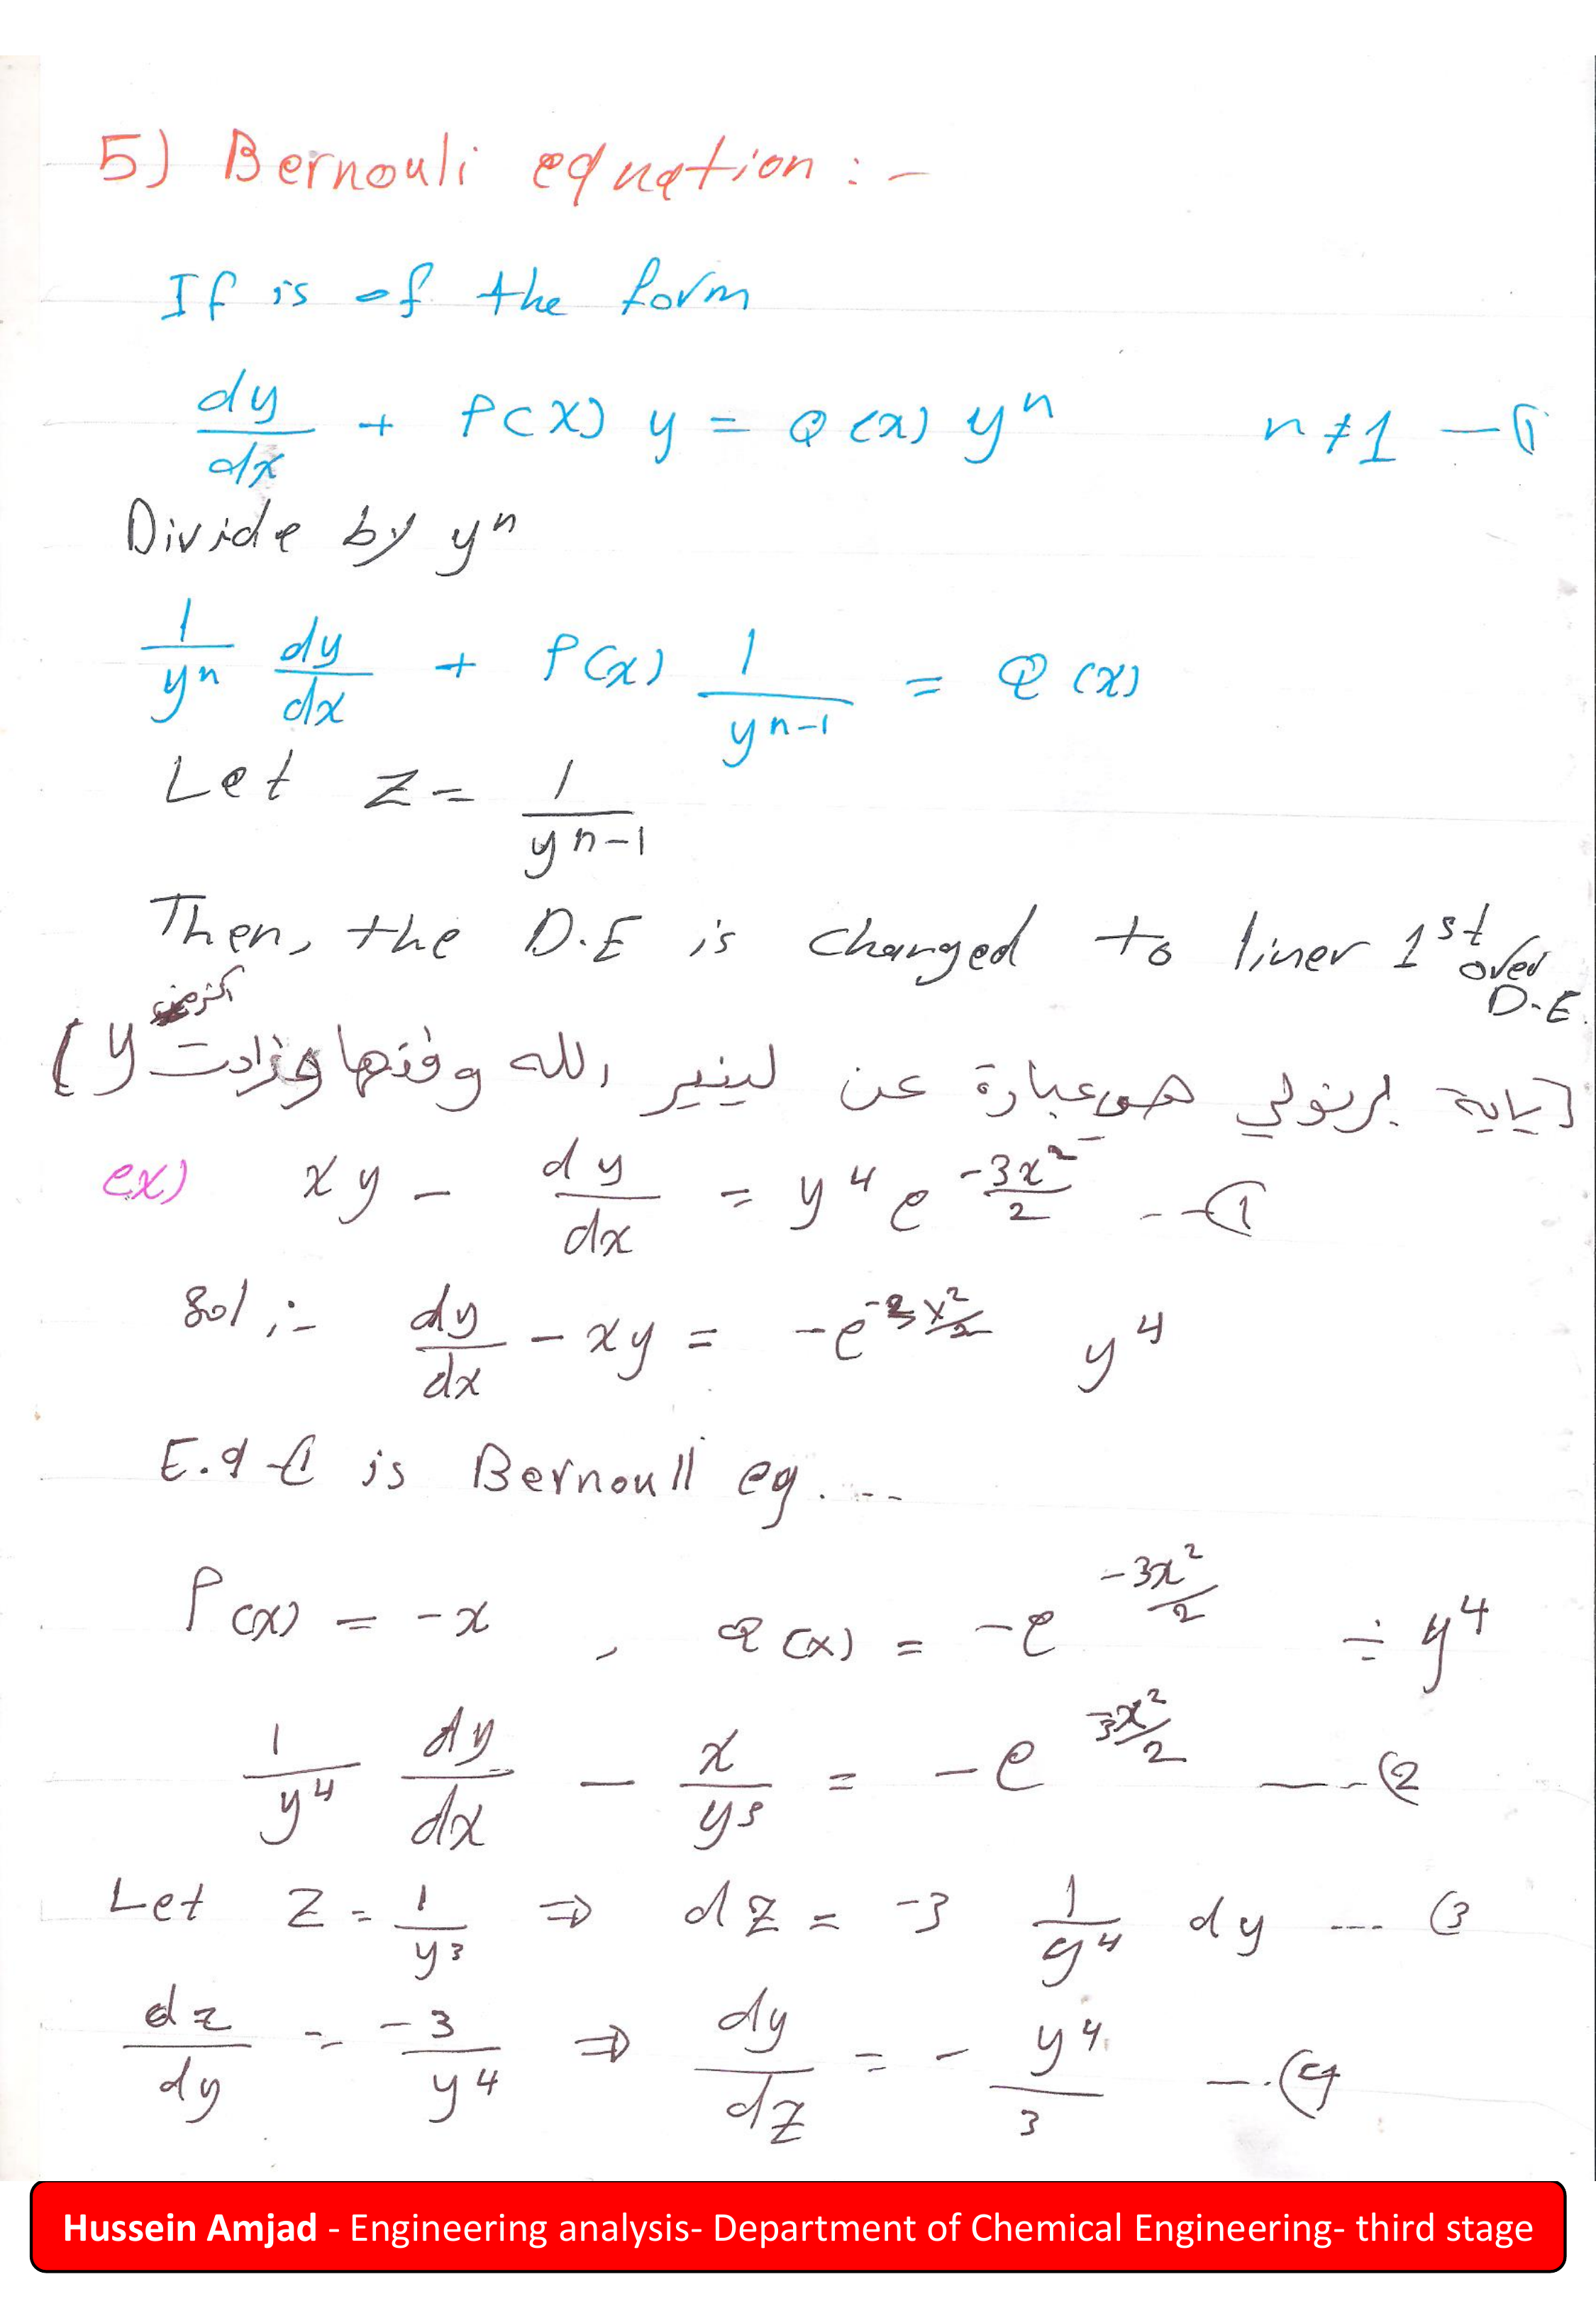 5) Bernouli equation : -
If is of the form
dy/dx + P(x) y = Q(x) y^n n ≠ 1 — 1
Divide by y^n
1/y^n dy/dx + P(x) 1/y^(n-1) = Q(x)
Let Z = 1/y^(n-1)
Then, the D.E is changed to liner 1st
D.E.
برنولي هو عبارة عن لينير الله وفقها وزادت y
اكثر من
ex) xy - dy/dx = y^4 e^(-3x^2/2) -- 1
Sol :- dy/dx - xy = -e^(-3x^2/2) y^4
E.q 1 is Bernoull eq. ...
P(x) = -x , Q(x) = -e^(-3x^2/2) ÷ y^4
1/y^4 dy/dx - x/y^3 = -e^(-3x^2/2) --- 2
Let Z = 1/y^3 ⇒ dZ = -3 1/y^4 dy --- 3
dz/dy = -3/y^4 ⇒ dy/dZ = - y^4/3 --- 4
Hussein Amjad - Engineering analysis- Department of Chemical Engineering- third stage